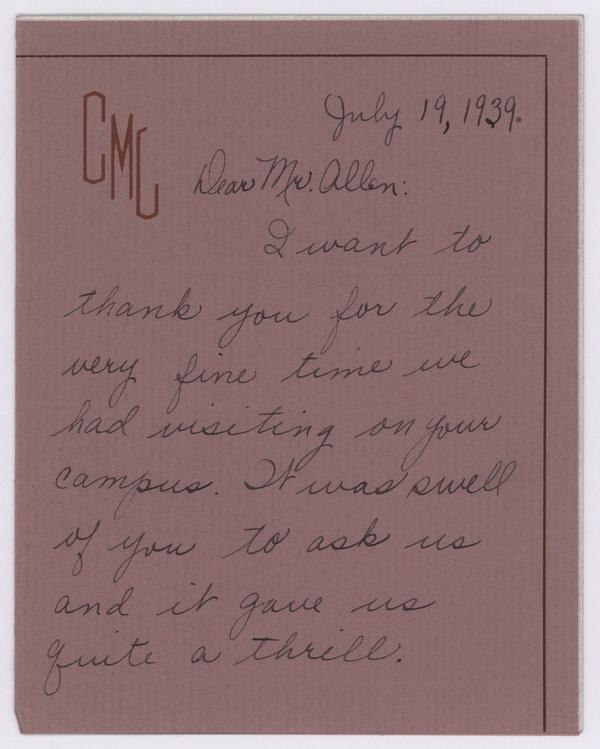 CMC
July 19, 1939.
Dear Mr. Allen:
I want to
thank you for the
very fine time we
had visiting on your
campus. It was swell
of you to ask us
and it gave us
quite a thrill.